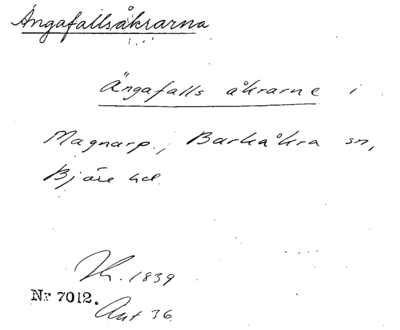 Ängafallsåkrarna
Ängafalls åkrarne i
Magnarp, Barkåkra sn,
Bjäre hd
Lh. 1839
Nr 7012.
Akt 36